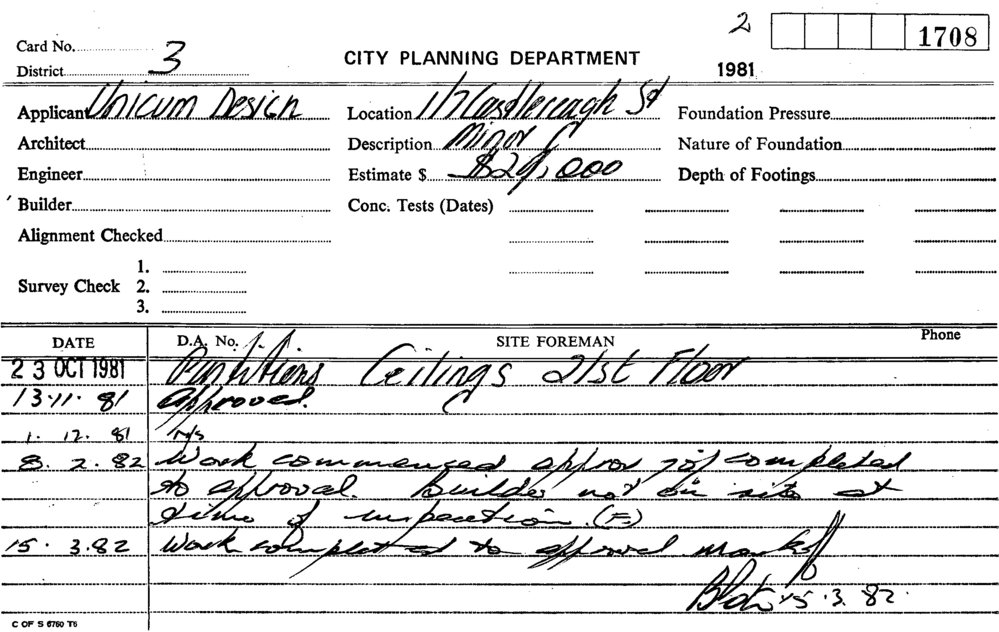 2 1708
Card No. 3
District
CITY PLANNING DEPARTMENT
1981
Applicant Unicum Design Location 117 Castlereagh St Foundation Pressure
Architect Description Minor Nature of Foundation
Engineer Estimate $ $29,000 Depth of Footings
Builder Conc. Tests (Dates)
Alignment Checked
1.
Survey Check 2.
3.
DATE D.A. No. SITE FOREMAN Phone
23 OCT 1981 Partitions Ceilings 21st Floor
13.11.81 Approved.
1.12.81 N/S
8.2.82 Work commenced approx completed
to approval. Builder not on site at
time of inspection. (F.)
15.3.82 Work completed to approval
15.3.82.
C OF S 6760 T6